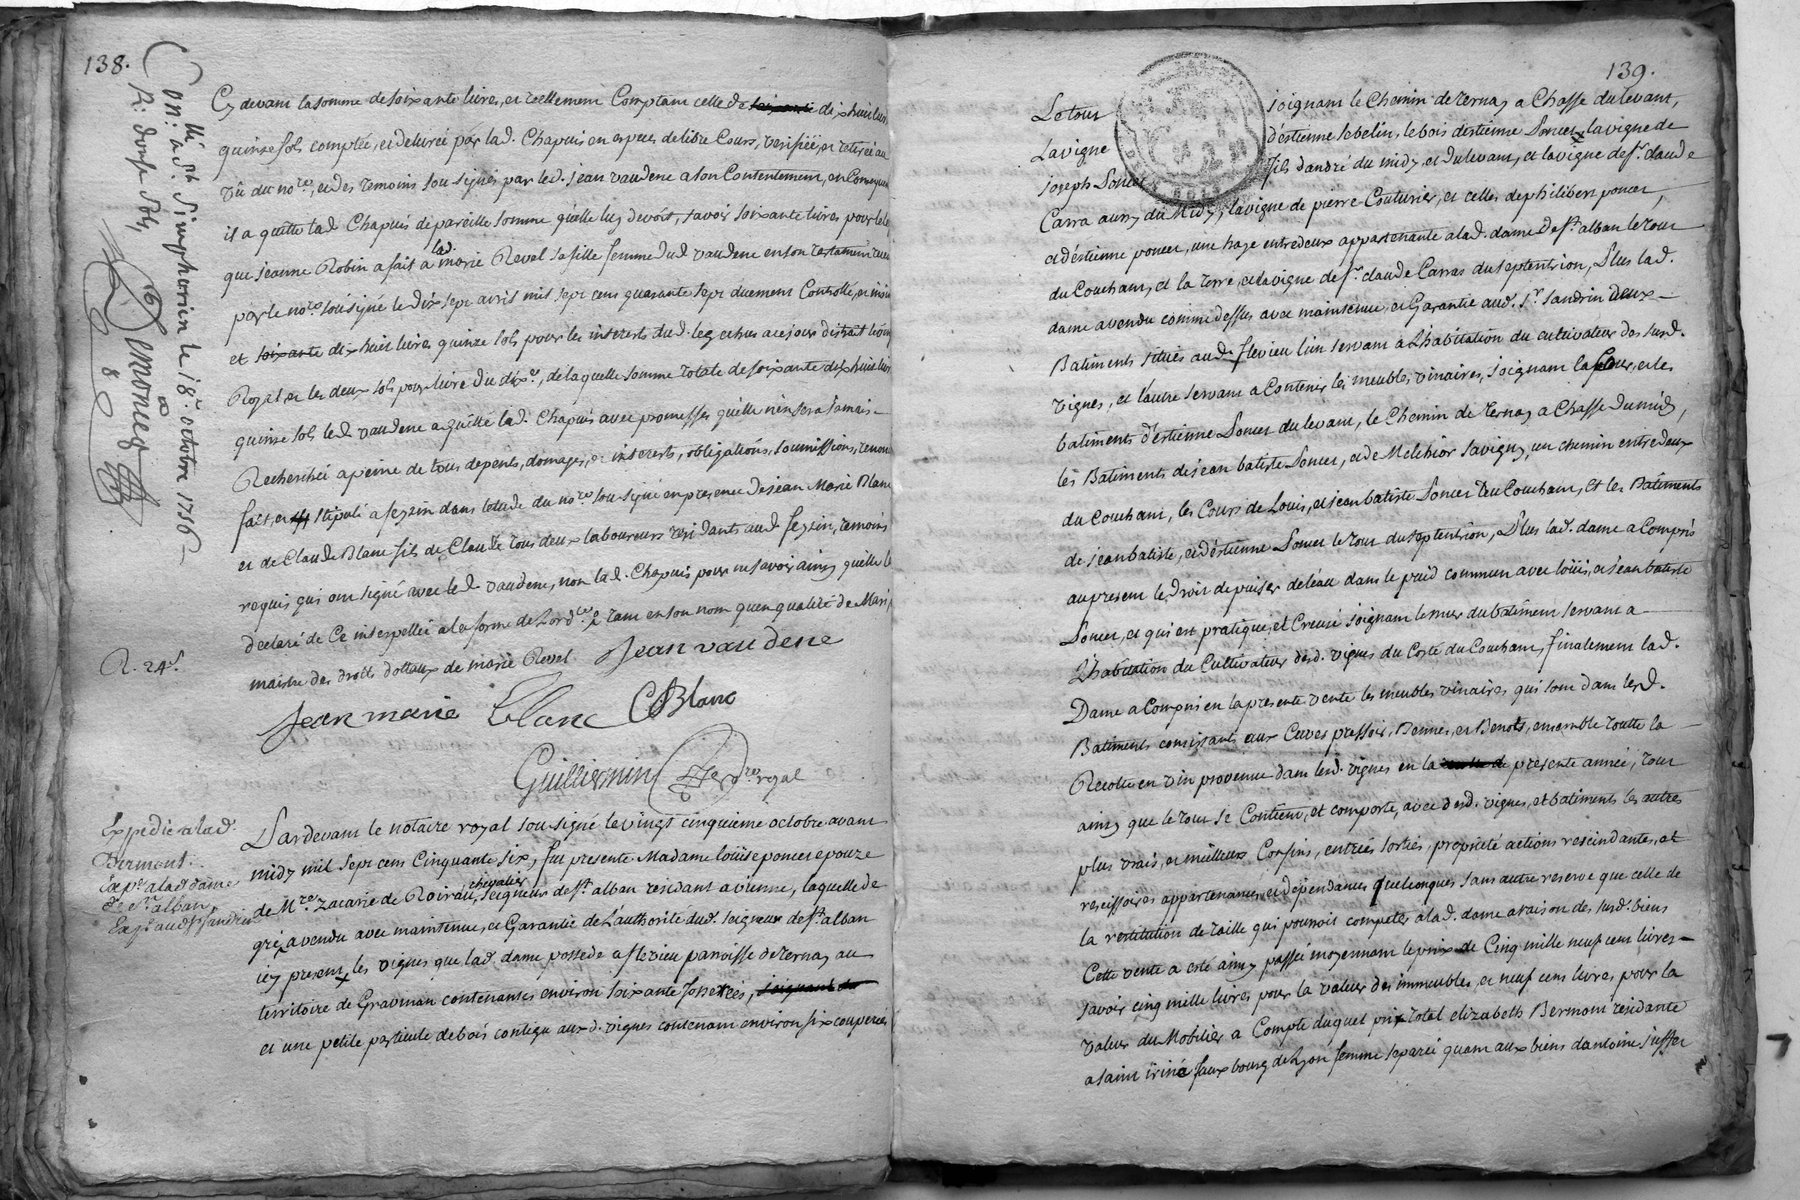 138.
Con.lé à St. Simphorin le 18e. octobre 1756
R. douse sols,
Demoneg
Cy devant la somme de soixante livre, et reellement Comptant celle de soixante dix huit livres
quinze sols comptée, et delivrée par lad. Chapuis en especes de libre Cours, verifiée, et retirée au
vû du nore, et des temoins sousignés par led. jean vaudene a son Contentement, en Consequence
il a quitté lad Chapuis de pareille somme qu'elle luy devoit, savoir soixante livres pour le leg
que jeanne Robin a fait a lad. marie Revel sa fille femme dud vaudene en son testament reçu
par le nore. sousigné le dix sept avril mil sept cens quarante sept duement Controllé, et insinué
et soixante dix huit livres quinze sols pour les interests dud. leg echus a ce jour distrait
Royal et les deux sols pour livre du dixe., de laquelle somme totale de soixante dix huit livres
quinze sols led vaudene a quitté lad. Chapuis avec promesses qu'elle n'en sera jamais
Recherchée a peine de tous depents, domages, et interests, obligations, soumissions, renon
fait, et stipulé a feyzin dans letude du nore. sousigné en presence de jean Marie Blanc
et de Claude Blanc fils de Claude tous deux laboureurs residants aud. feyzin, temoins
requis qui ont signé avec led vaudene, non lad. Chapuis pour ne savoir ainsy quelle la
declaré de Ce interpellée a la forme de Lordce. tant en son nom quen qualité de Mari,
maistre des droits dottaux de marie Revel
R. 24s.
Jean vaudene
Jean marie Blanc CBlanc
Guilliermin nore royal
Expedié a lad.
Bermont.
Exp. a lad. dame
de St. alban
Exp. aud Sr. Sandrin
Pardevant le notaire royal sousigné le vingt cinquieme octobre avant
midy mil sept cens Cinquante six, fut presente Madame loüise poncet epouze
de Mre. Zacarie de Roirau, chevalier seigneur de St. alban residant a vienne, laquelle de
gré a vendu avec maintenue, et Garantie de L'authorité dud. seigneur de St. alban
icy present les vignes que lad. dame possede a flevieu parroisse de ternay au
territoire de Gravinan contenantes environ soixante fosserées, joignant du
et une petite particule de bois contigu auxd. vignes contenant environ six couperées
139.
Le tout joignant le Chemin de ternay a Chasse du levant,
La vigne d'estienne sebelin, le bois d'estienne Poncet la vigne de
joseph Poncet fils d'andré du midy et du levant, et la vigne de Sr. claude
Carra aussy du Midy, la vigne de pierre Couturier, et celles de philibert poncet,
et d'estienne poncet, une haye entredeux appartenante a lad. dame de St. alban le tout
du Couchant, et la terre, et la vigne de Sr. claude Carras du septentrion, Plus lad.
dame a vendu comme dessus avec maintenue, et Garantie aud. Sr. sandrin deux
Batiments situés aud. flevieu l'un servant à L'habitation du cultivateur des susd.
vignes, et l'autre servant a Contenir les meubles vinaires, joignant la Cour, et les
batiments d'estienne Poncet du levant, le Chemin de ternay a Chasse du midy,
les Batiments de jean batiste Poncet, et de Melchior Savigny, un chemin entredeux
du Couchant, les Cours de Louis, et jean batiste Poncet du Couchant, et les Batiments
de jean batiste, et d'estienne Poncet le tout du septentrion, Plus lad. dame a Compris
au present le droit de puiser de léau dans le puid commun avec loüis, et jean batiste
Poncet, et qui est pratiqué, et Creusé joignant le mur du batiment servant a
L'habitation du Cultivateur desd. vignes du Costé du Couchant, finalement lad.
Dame a Compris en la presente vente les meubles vinaires qui sont dans lesd.
Batiments consistants aux Cuves pressoir, Bennes, et Benots, ensemble toutte la
Recolte en vin provenue dans lesd. vignes en la presente année, tout
ainsy que le tout se Contient, et comporte, avec desd. vignes, et batiments les autres
plus vrais, et meilleurs Confins, entrées sorties, proprieté actions rescindantes, et
rescissoires appartenances, et dependances quelconques sans autre reserve que celle de
la restitution de taille qui pourroit competer a lad. dame a raison des susd. biens
Cette vente a esté ainsy passée moyennant le prix de Cinq mille neuf cent livres
savoir cinq mille livres pour la valeur des immeubles, et neuf cens livres pour la
valeur du Mobilier a Compte duquel prix total elizabeth Bermont residante
a saint iriné fauxbourg de Lyon femme separée quant aux biens d'antoine